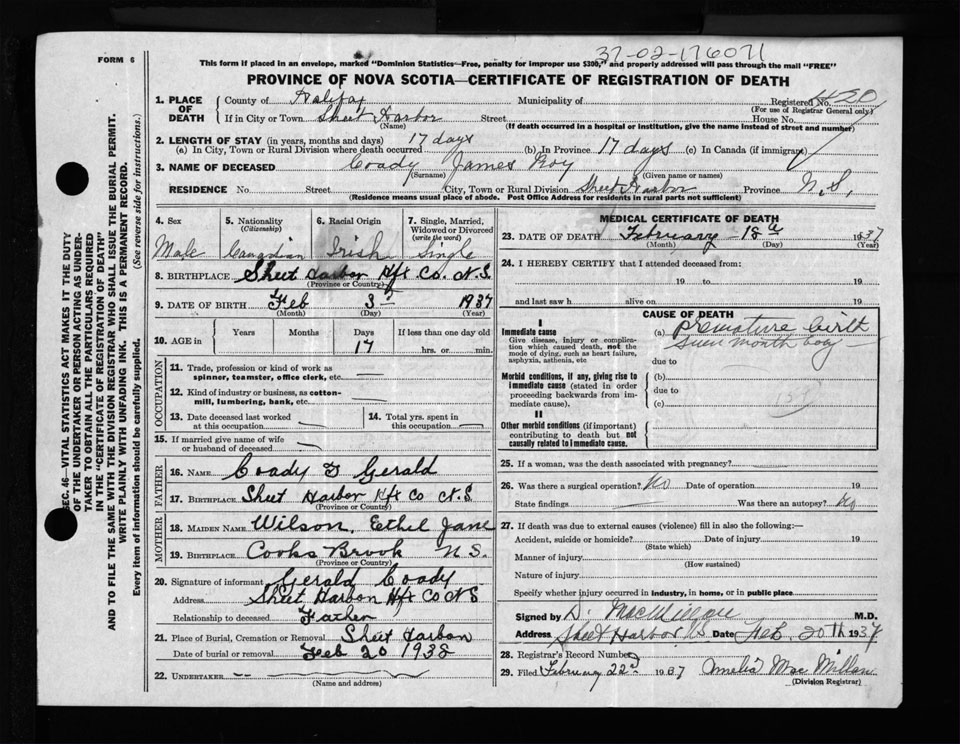 37-02-176071
FORM 6
This form if placed in an envelope, marked "Dominion Statistics—Free, penalty for improper use $300," and properly addressed will pass through the mail "FREE"
PROVINCE OF NOVA SCOTIA—CERTIFICATE OF REGISTRATION OF DEATH
SEC. 46—VITAL STATISTICS ACT MAKES IT THE DUTY
OF THE UNDERTAKER OR PERSON ACTING AS UNDER-
TAKER TO OBTAIN ALL THE PARTICULARS REQUIRED
IN THE "CERTIFICATE OF REGISTRATION OF DEATH"
AND TO FILE THE SAME WITH THE DIVISION REGISTRAR WHO SHALL ISSUE THE BURIAL PERMIT.
WRITE PLAINLY WITH UNFADING INK. THIS IS A PERMANENT RECORD.
Every item of information should be carefully supplied. (See reverse side for instructions.)
1. PLACE OF DEATH
County of Halifax Municipality of Registered No.
(For use of Registrar General only)
If in City or Town Sheet Harbor Street House No.
(Name) (If death occurred in a hospital or institution, give the name instead of street and number)
2. LENGTH OF STAY (in years, months and days)
(a) In City, Town or Rural Division where death occurred 17 days (b) In Province 17 days (c) In Canada (if immigrant)
3. NAME OF DECEASED Coady James Roy
(Surname) (Given name or names)
RESIDENCE No. Street City, Town or Rural Division Sheet Harbor Province N.S.
(Residence means usual place of abode. Post Office Address for residents in rural parts not sufficient)
4. Sex
Male
5. Nationality
(Citizenship)
Canadian
6. Racial Origin
Irish
7. Single, Married,
Widowed or Divorced
(write the word)
Single
8. BIRTHPLACE Sheet Harbor Hfx Co. N.S.
(Province or Country)
9. DATE OF BIRTH Feb 3 1937
(Month) (Day) (Year)
10. AGE in
Years Months Days If less than one day old
17 hrs. or min.
OCCUPATION
11. Trade, profession or kind of work as
spinner, teamster, office clerk, etc. —
12. Kind of industry or business, as cotton-
mill, lumbering, bank, etc. —
13. Date deceased last worked
at this occupation
14. Total yrs. spent in
this occupation
15. If married give name of wife
or husband of deceased
FATHER
16. NAME Coady G Gerald
17. BIRTHPLACE Sheet Harbor Hfx Co N.S.
(Province or Country)
MOTHER
18. MAIDEN NAME Wilson, Ethel Jane
19. BIRTHPLACE Cooks Brook N S.
(Province or Country)
20. Signature of informant Gerald Coady
Address Sheet Harbor Hfx Co N S
Relationship to deceased Father
21. Place of Burial, Cremation or Removal Sheet Harbor
Date of burial or removal Feb 20 1938
22. UNDERTAKER
(Name and address)
MEDICAL CERTIFICATE OF DEATH
23. DATE OF DEATH February 18th 1937
(Month) (Day) (Year)
24. I HEREBY CERTIFY that I attended deceased from:
19 to 19
and last saw h alive on 19
CAUSE OF DEATH
I
Immediate cause
Give disease, injury or complica-
tion which caused death, not the
mode of dying, such as heart failure,
asphyxia, asthenia, etc
(a) premature birth
seven month boy
due to
Morbid conditions, if any, giving rise to
immediate cause (stated in order
proceeding backwards from im-
mediate cause).
(b)
due to
(c)
II
Other morbid conditions (if important)
contributing to death but not
causally related to immediate cause.
25. If a woman, was the death associated with pregnancy?
26. Was there a surgical operation? No Date of operation 19
State findings Was there an autopsy? No
27. If death was due to external causes (violence) fill in also the following:—
Accident, suicide or homicide? Date of injury 19
(State which)
Manner of injury
(How sustained)
Nature of injury
Specify whether injury occurred in industry, in home, or in public place
Signed by D. MacMillan M.D.
Address Sheet Harbor NS Date Feb. 20th 1937
28. Registrar's Record Number
29. Filed February 22nd 1937 Amelia MacMillan
(Division Registrar)